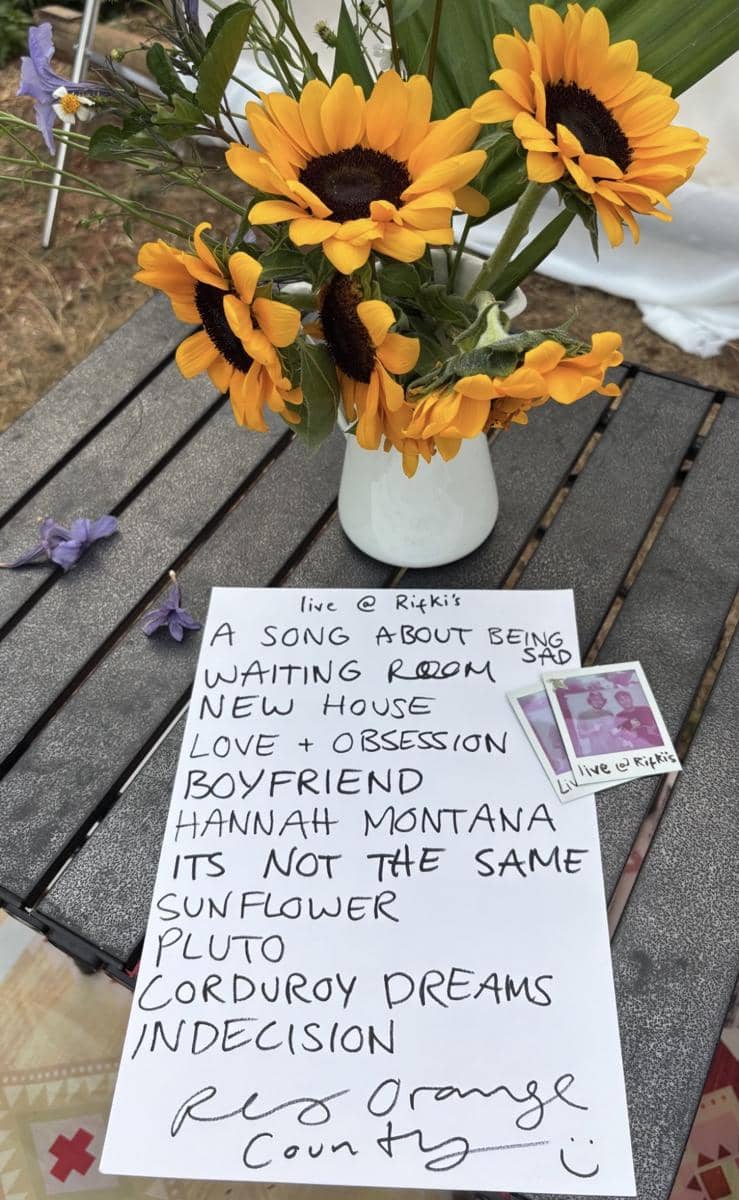 live @ Rifki's
A SONG ABOUT BEING
SAD
WAITING ROOM
NEW HOUSE
LOVE + OBSESSION
BOYFRIEND
HANNAH MONTANA
ITS NOT THE SAME
SUNFLOWER
PLUTO
CORDUROY DREAMS
INDECISION
Rex Orange
County
live @ Rifki's
Liv